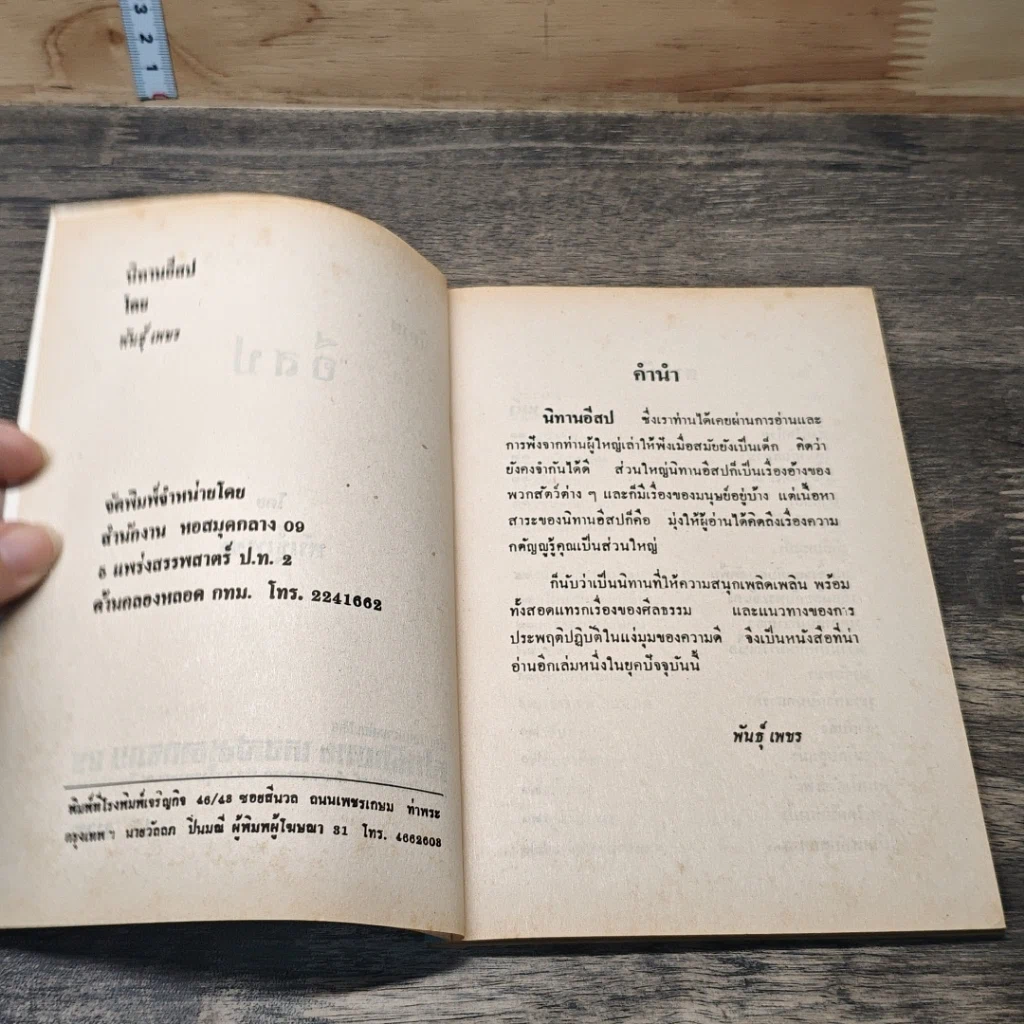 3
2
1
นิทานอีสป
โดย
พันธุ์ เพชร
จัดพิมพ์จำหน่ายโดย
สำนักงาน หอสมุดกลาง 09
แพร่งสรรพสาตร์ ป.ท. 2
ด้านคลองหลอด กทม. โทร. 2241662
พิมพ์ที่โรงพิมพ์เจริญกิจ 46/48 ซอยสีนวล ถนนเพชรเกษม ท่าพระ
กรุงเทพฯ นายวัลลภ ปิ่นมณี ผู้พิมพ์ผู้โฆษณา 31 โทร. 4662608
คำนำ
นิทานอีสป ซึ่งเราท่านได้เคยผ่านการอ่านและ
การฟังจากท่านผู้ใหญ่เล่าให้ฟังเมื่อสมัยยังเป็นเด็ก คิดว่า
ยังคงจำกันได้ดี ส่วนใหญ่นิทานอีสปก็เป็นเรื่องอ้างของ
พวกสัตว์ต่าง ๆ และก็มีเรื่องของมนุษย์อยู่บ้าง แต่เนื้อหา
สาระของนิทานอีสปก็คือ มุ่งให้ผู้อ่านได้คิดถึงเรื่องความ
กตัญญูรู้คุณเป็นส่วนใหญ่
ก็นับว่าเป็นนิทานที่ให้ความสนุกเพลิดเพลิน พร้อม
ทั้งสอดแทรกเรื่องของศีลธรรม และแนวทางของการ
ประพฤติปฏิบัติในแง่มุมของความดี จึงเป็นหนังสือที่น่า
อ่านอีกเล่มหนึ่งในยุคปัจจุบันนี้
พันธุ์ เพชร